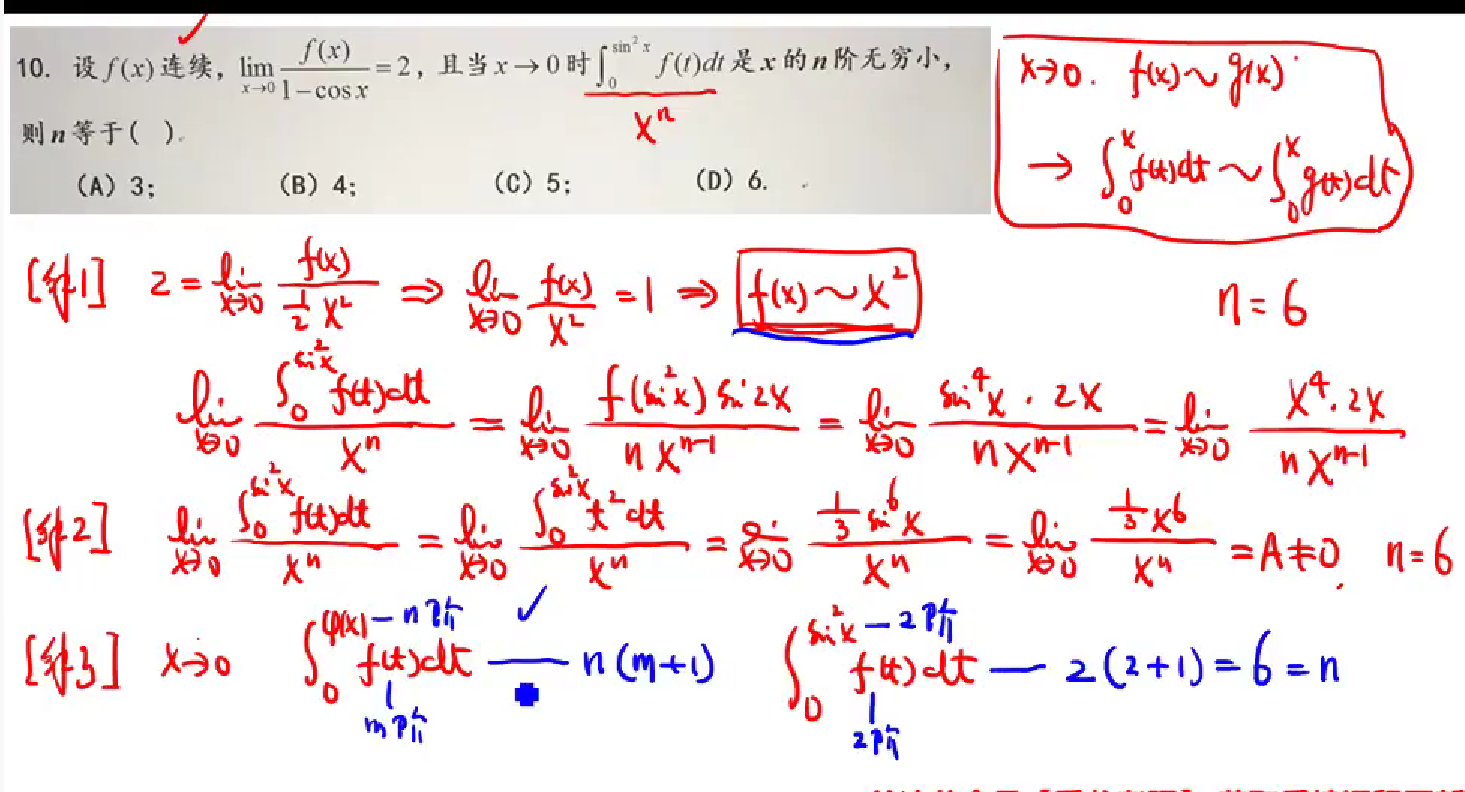 10. 设 f(x) 连续，lim_{x→0} f(x)/(1−cos x) = 2，且当 x→0 时 ∫_0^{sin²x} f(t)dt 是 x 的 n 阶无穷小，
x^n
则 n 等于( ).
(A) 3; (B) 4; (C) 5; (D) 6.
x→0. f(x)∼g(x)
→ ∫_0^x f(t)dt ∼ ∫_0^x g(t)dt
[解1] 2 = lim_{x→0} f(x)/(½x²) ⇒ lim_{x→0} f(x)/x² = 1 ⇒ f(x)∼x² n=6
lim_{x→0} ∫_0^{sin²x} f(t)dt / x^n = lim_{x→0} f(sin²x) sin2x / (n x^{n-1}) = lim_{x→0} sin⁴x·2x / (n x^{n-1}) = lim_{x→0} x⁴·2x / (n x^{n-1})
[解2] lim_{x→0} ∫_0^{sin²x} f(t)dt / x^n = lim_{x→0} ∫_0^{sin²x} t²dt / x^n = lim_{x→0} ⅓sin⁶x / x^n = lim_{x→0} ⅓x⁶ / x^n = A≠0. n=6
[解3] x→0 ∫_0^{φ(x)—n阶} f(t)dt — n(m+1) ∫_0^{sin²x—2阶} f(t)dt — 2(2+1)=6=n
m阶 2阶